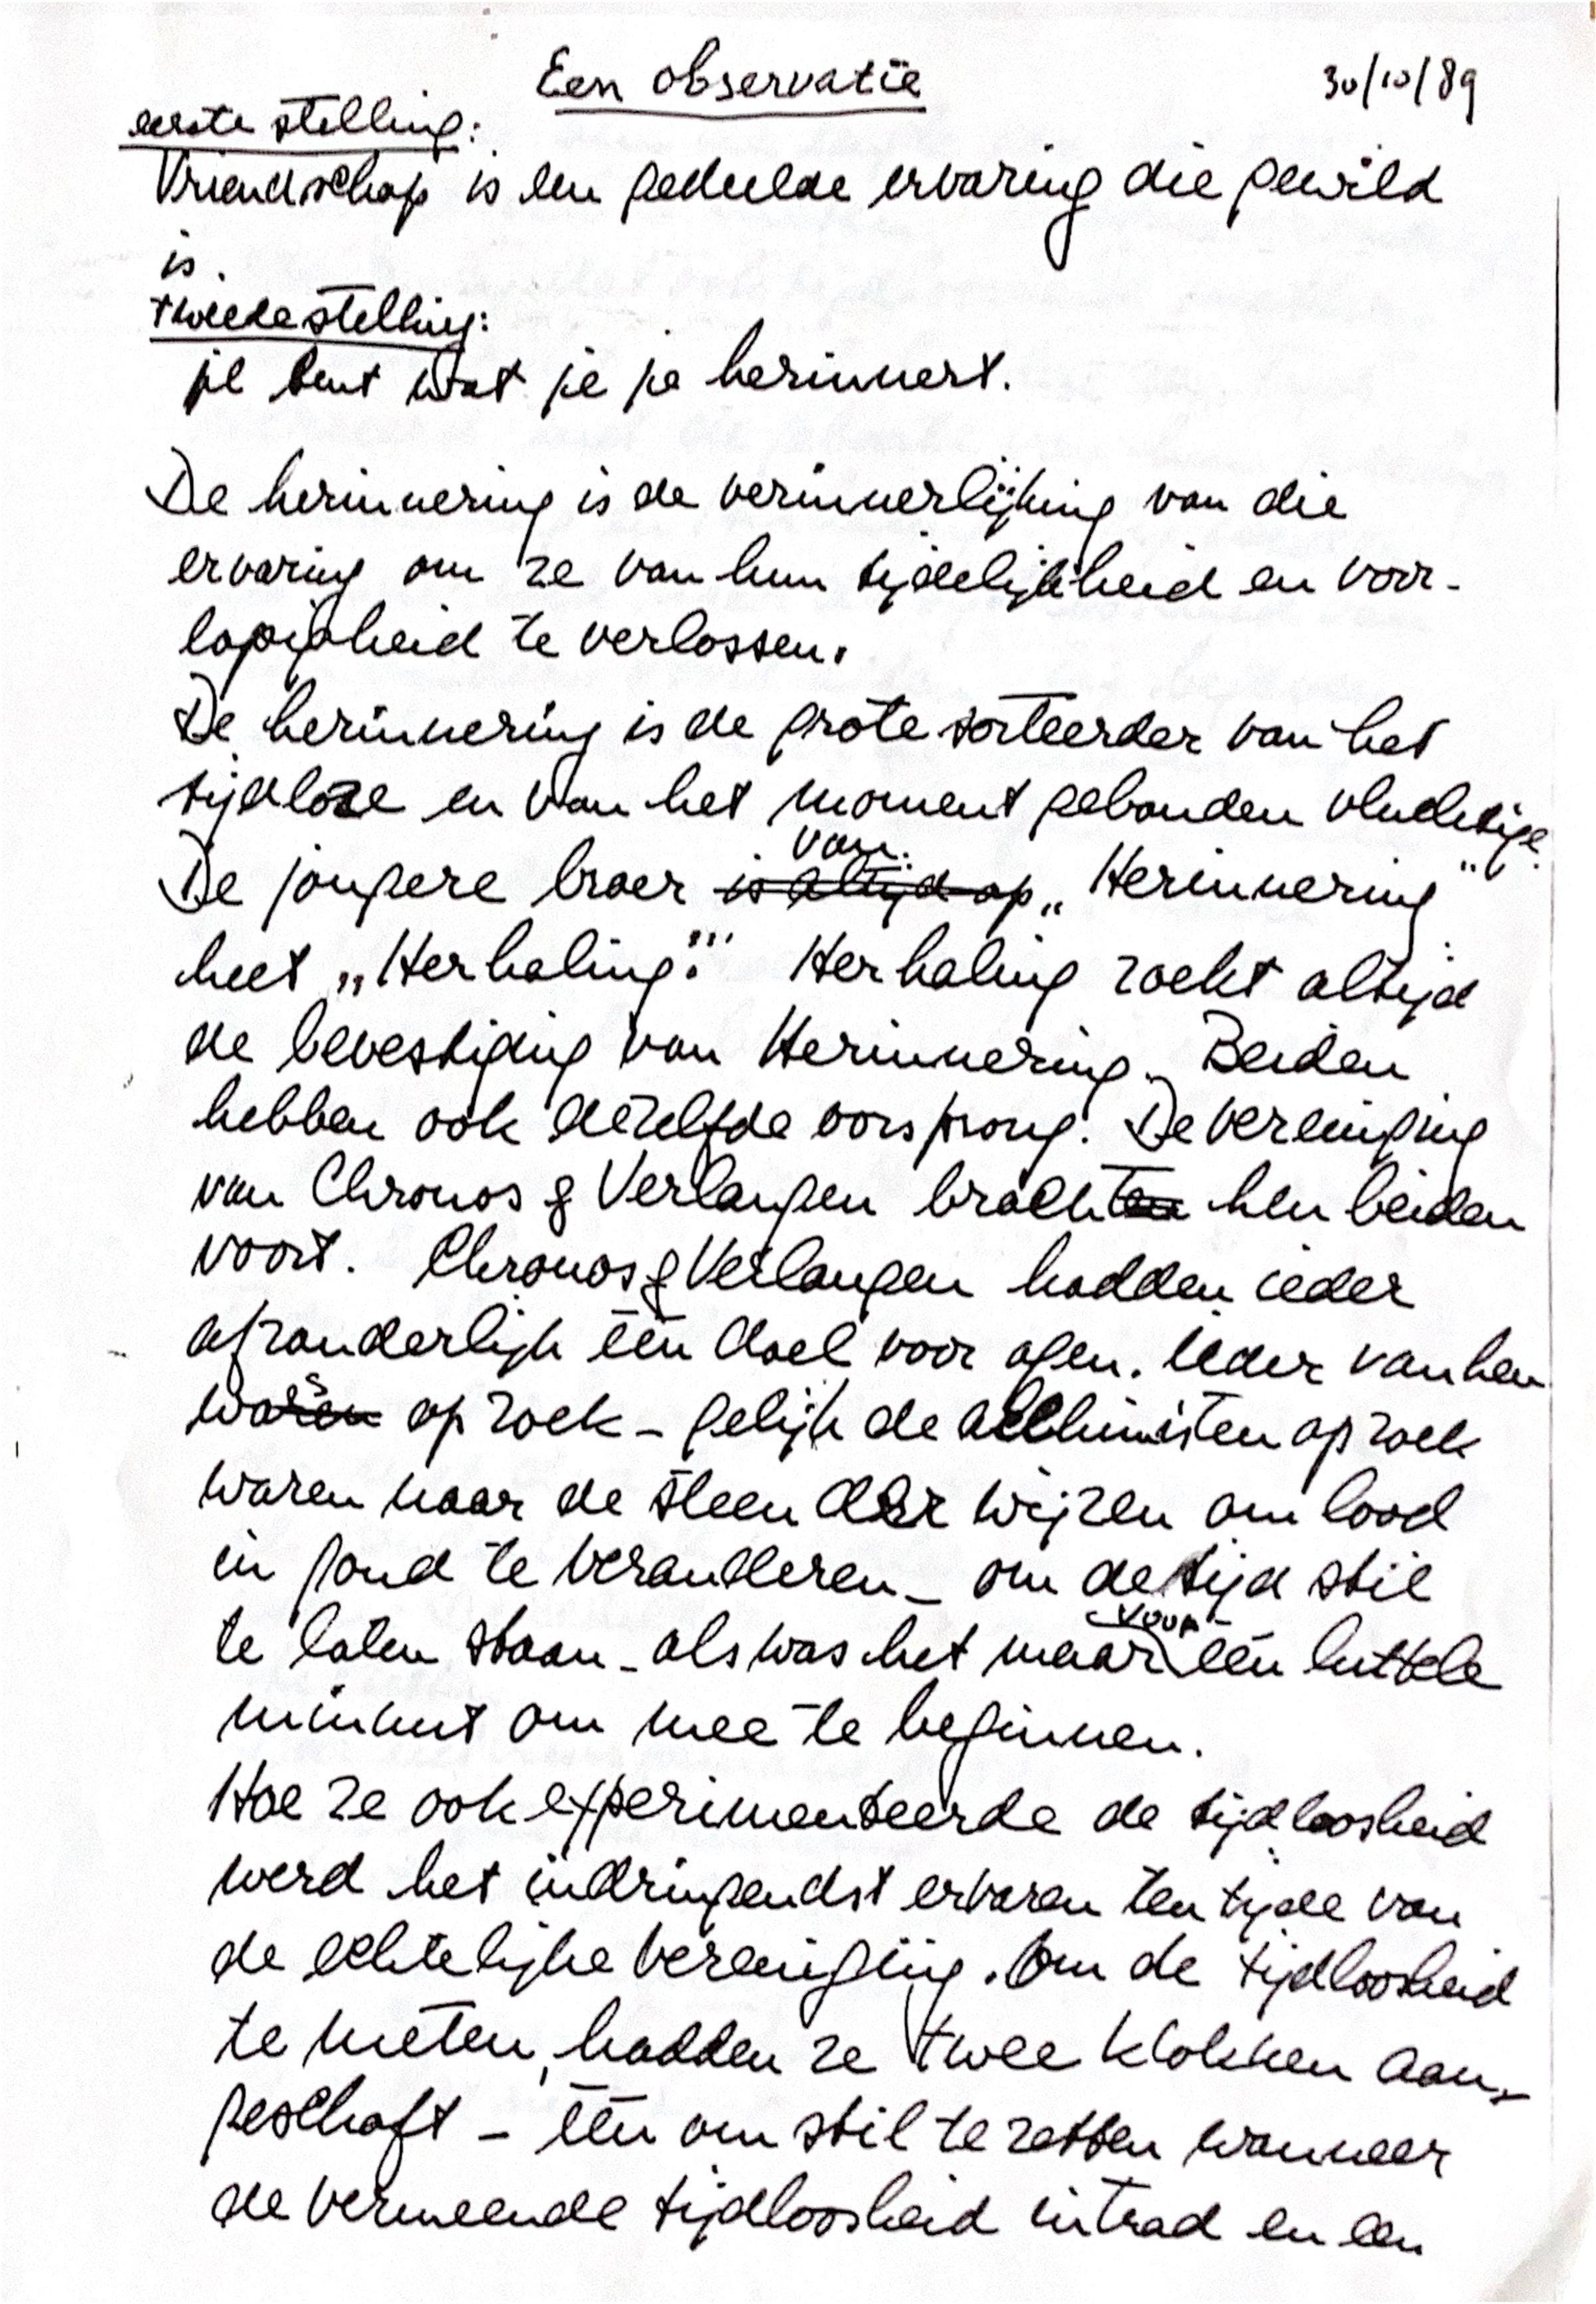 Een observatie
30/10/89
eerste stelling:
Vriendschap is een gedeelde ervaring die gewild
is.
tweede stelling:
je bent wat je je herinnert.
De herinnering is de verinnerlijking van die
ervaring om ze van hun tijdelijkheid en voor-
lopigheid te verlossen.
De herinnering is de grote sorteerder van het
tijdloze en van het moment gebonden vluchtige.
De jongere broer is altijd op van: „Herinnering"
heet „Herhaling". Herhaling zoekt altijd
de bevestiging van Herinnering. Beiden
hebben ook dezelfde oorsprong. De vereniging
van Chronos & Verlangen brachten hen beiden
voort. Chronos & Verlangen hadden ieder
afzonderlijk één doel voor ogen. Ieder van hen
was op zoek - gelijk de alchimisten op zoek
waren naar de steen der wijzen om lood
in goud te veranderen - om de tijd stil
te laten staan - als was het maar voor één luttele
minuut om mee te beginnen.
Hoe ze ook experimenteerde de tijdloosheid
werd het indringendst ervaren ten tijde van
de echtelijke vereniging. Om de tijdloosheid
te meten, hadden ze twee klokken aan-
geschaft - één om stil te zetten wanneer
de vermeende tijdloosheid intrad en een